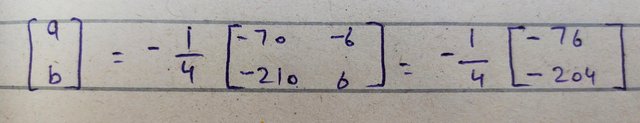 [a b] = - 1/4 [-70 -6 -210 6] = - 1/4 [-76 -204]